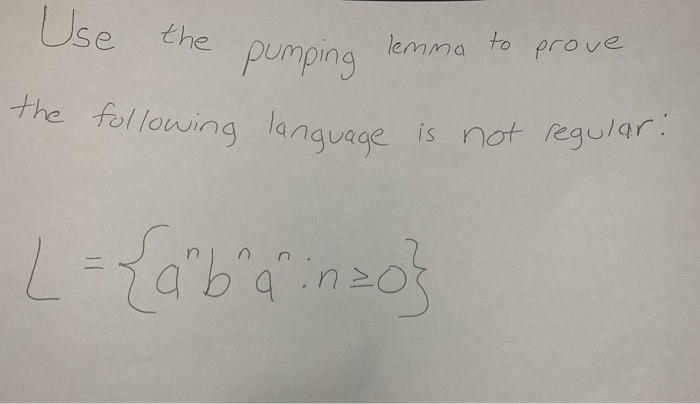 Use the pumping lemma to prove
the following language is not regular:
L = {aⁿbⁿaⁿ : n ≥ 0}